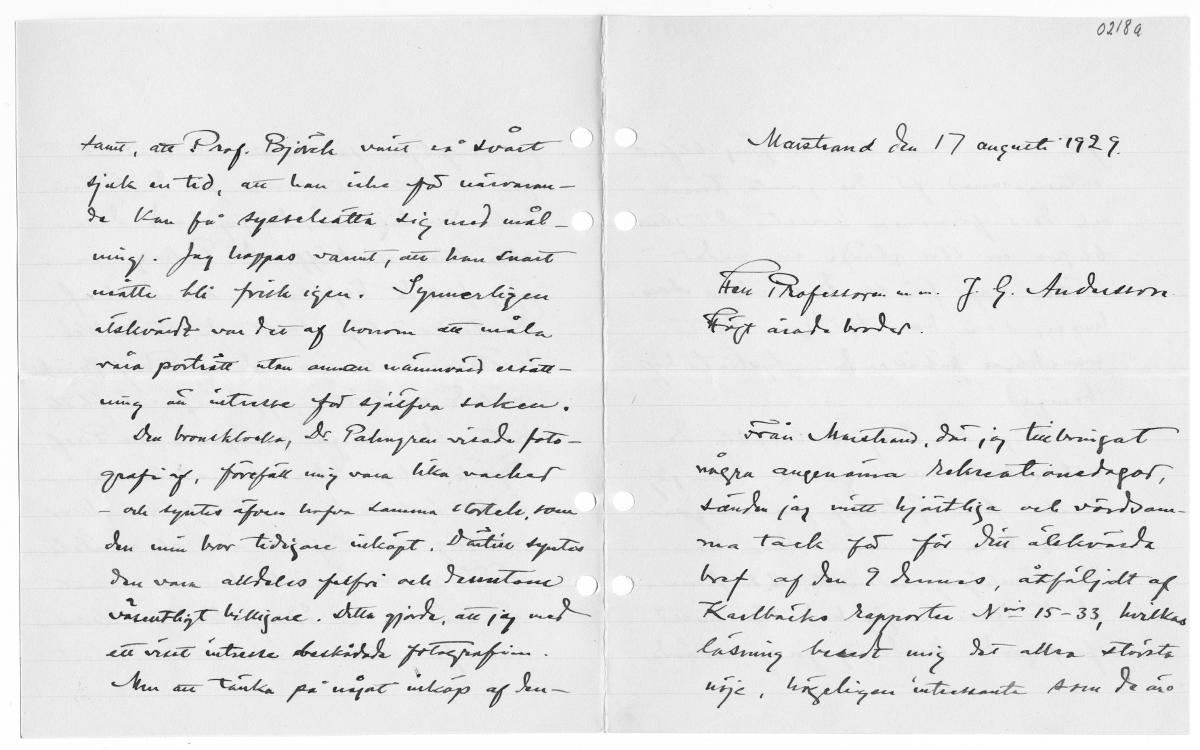 0218a
Marstrand den 17 augusti 1929.
Herr Professorn m.m. J. G. Andersson.
Högt ärade broder.
Från Marstrand, där jag tillbringat
några angenäma rekreationsdagar,
sänder jag mitt hjärtliga och vördsam-
ma tack för för Ditt älskvärda
bref af den 9 dennes, åtföljdt af
Karlbäcks rapporter Nris 15-33, hvilkas
läsning beredt mig det allra största
nöje, högeligen intressanta som de äro
samt, att Prof. Björck varit så svårt
sjuk en tid, att han icke för närvaran-
de kan få sysselsätta sig med mål-
ning. Jag hoppas varmt, att han snart
måtte bli frisk igen. Synnerligen
älskvärdt var det af honom att måla
våra porträtt utan annan nämnvärd ersätt-
ning än intresse för själfva saken.
Den bronsklocka, Dr. Palmgren visade foto-
grafi af, föreföll mig vara lika vacker
- och syntes äfven hafva samma storlek, som
den min bror tidigare inköpt. Därtill syntes
den vara alldeles felfri och dessutom
väsentligt billigare. Detta gjorde, att jag med
ett visst intresse beskådade fotografien.
Men att tänka på något inköp af den-